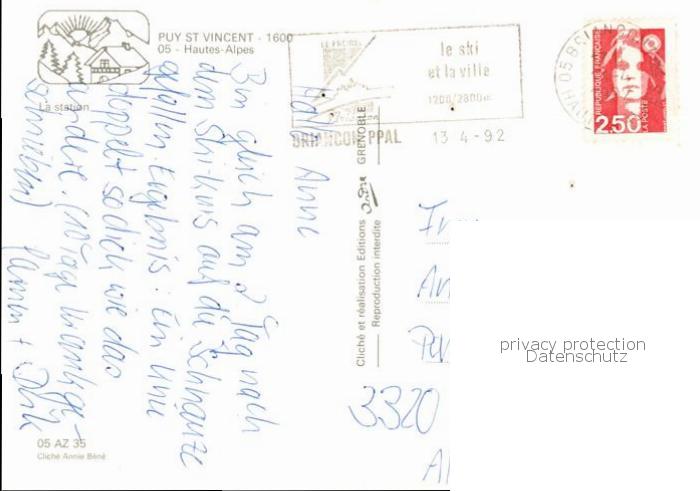 PUY ST VINCENT - 1600
05 - Hautes-Alpes
La station
le ski
et la ville
1200/2800m
BRIANCON PPAL 13-4-92
HAUTES
REPUBLIQUE FRANÇAISE
2.50
LA POSTE
Hallo Anne
Bin gleich am 2 Tag nach
dem Skikurs auf die Schnauze
gefallen. Ergebnis: Ein Knie
doppelt so dick wie das
andere. (10 Tage krankge-
schrieben)
+ Dirk
GRENOBLE
Cliché et réalisation Editions André
Reproduction interdite
3320
05 AZ 35
Cliché Annie Béné
privacy protection
Datenschutz